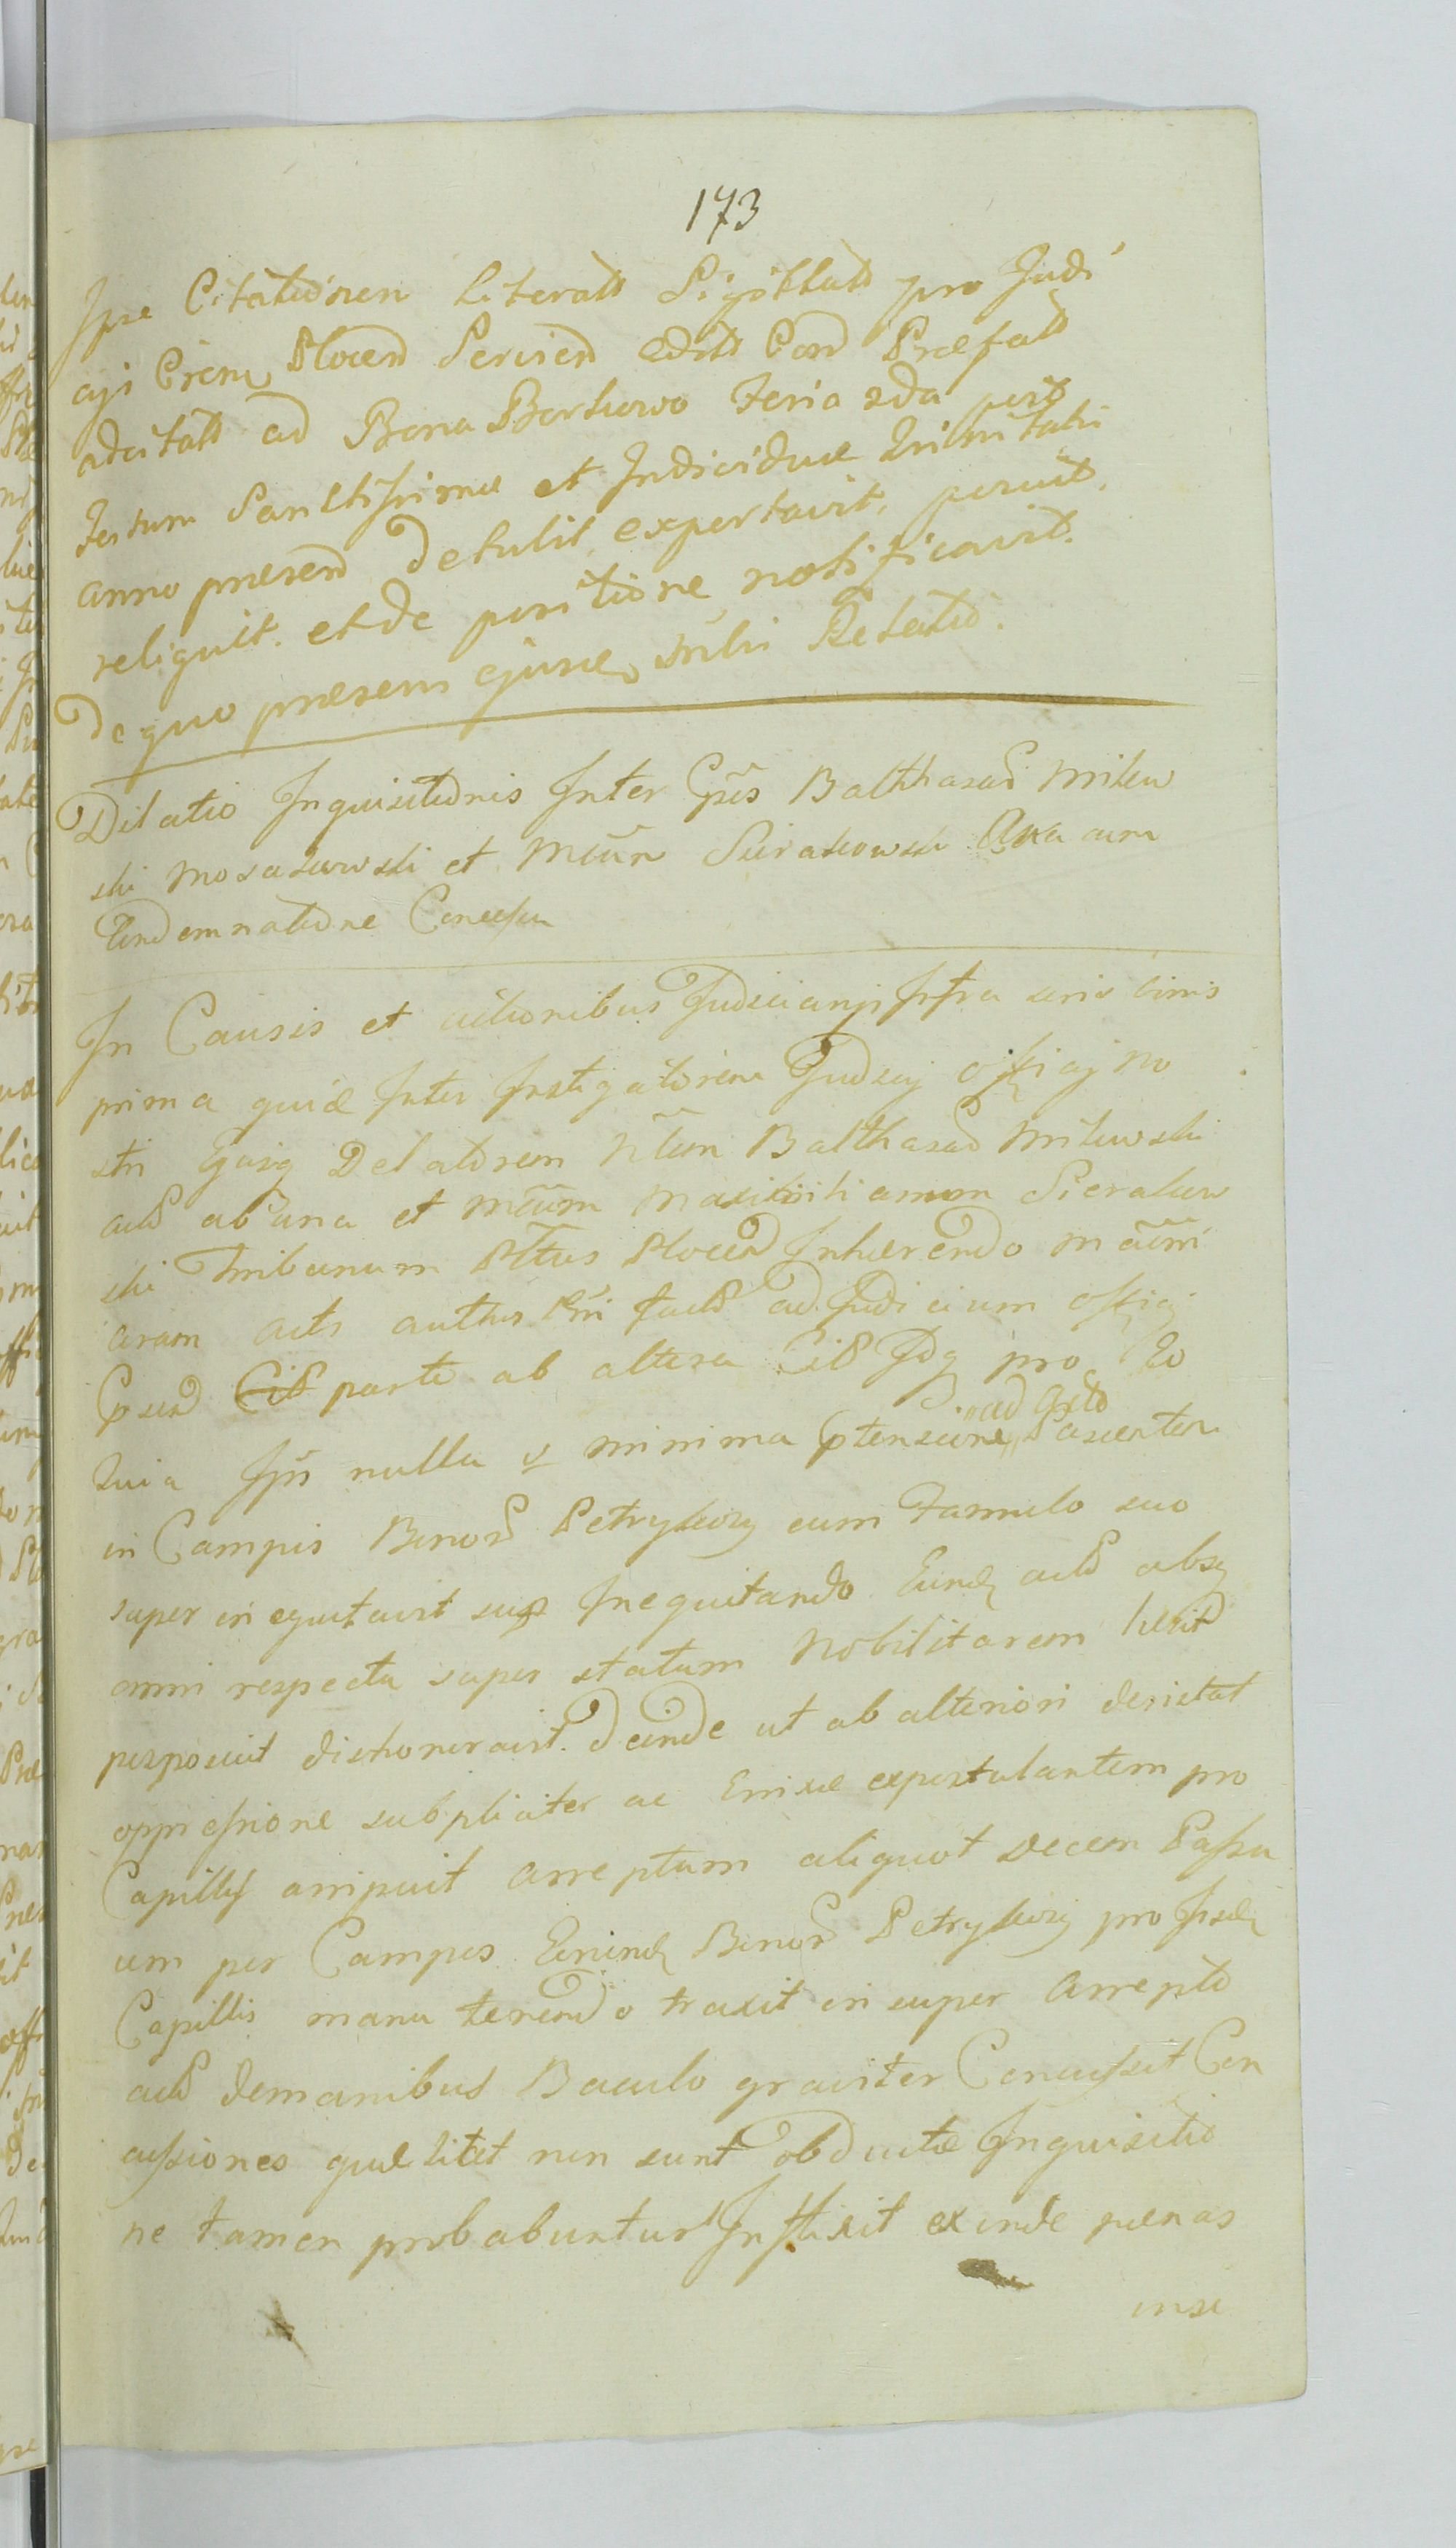 173
Ipse Citationem Literatt Sigillatt pro Judi
cyi Crem Plocen Servien edit Con Præfatt
adcitatt ad Bona Borkowo Feria 2da post
Festum Sanctissimæ et Individuæ Trinitatis
anno præsen detulit, exportavit, posuit,
reliquit. et de positione notificavit.
De quo præsens ejusd mihi Relatio.
Dilatio Inquisitionis Inter Gnos Balthasar Milew
ski Mosakowski et Mcum Sierakowski cum
Condemnatione Concessa
In Causis et actionibus Judiciarijs Infra
prima quiæ Inter Instigatorem Judicij officij no
stri Ejusq Delatorem Nlem Balthasar Milewski
act ab una et Mcum Maximilianum Sierakow
ski Tribunum Plocen Inhærendo
aram acts authus ad Judicium officij
parte ab altera Cit Idq pro Eo
Quia Ipse nulla minima ptensione ad
in Campis Bonor Petrykozy cum Famulo suo
super in equitavit Inequitando Eund act absq
omni respectu super statum Nobilitarem
perposuit dishonoravit. Deinde ut ab alteriori desistat
oppressione subpliciter ac Enixe expostulantem pro
Capillis arripuit arreptum aliquot decem Passu
um per Campos Eorund Bonor Petrykozy pro Iisd
Capillis manu tenendo traxit in super Arrepto
act de manibus Baculo graviter Concussit Con
cussiones quæ licet non sunt obductæ Inquisitio
ne tamen probabuntur Inflixit exinde pœnas